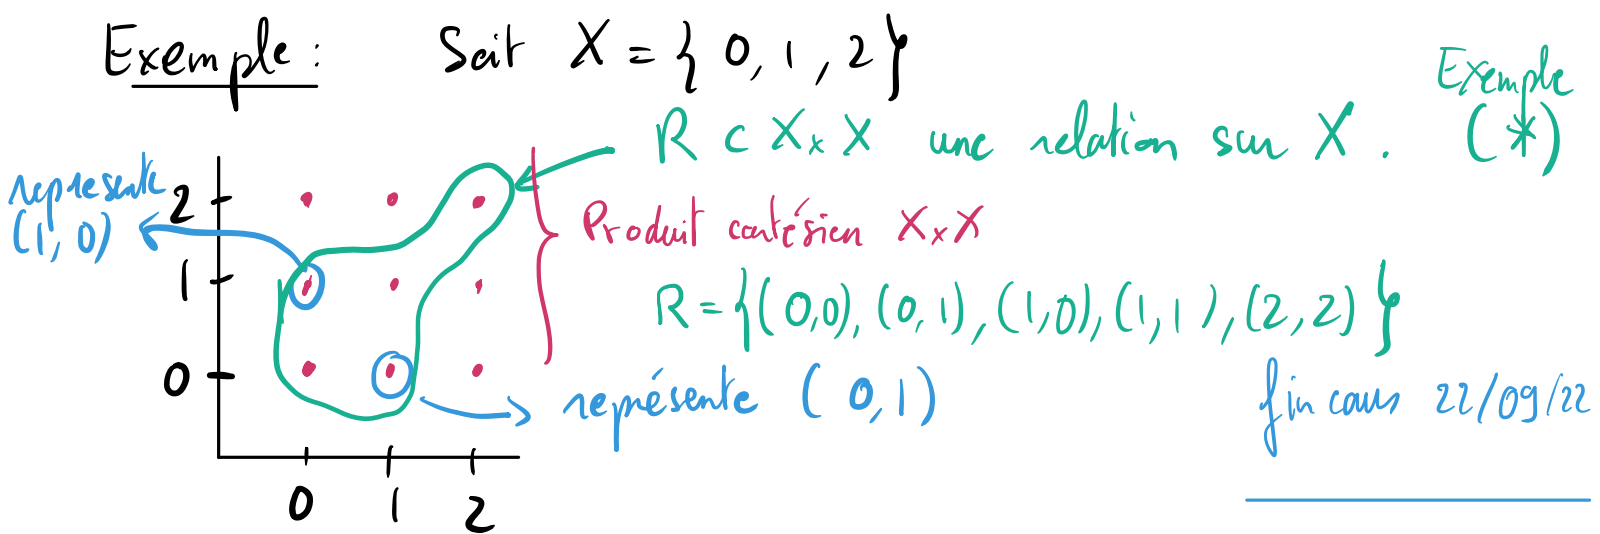 Exemple : Soit X = { 0, 1, 2 }
Exemple
(*)
R ⊂ X × X une relation sur X .
represente
(1, 0)
2
1
0
0 1 2
Produit cartésien X × X
R = { (0,0), (0,1), (1,0), (1,1), (2,2) }
représente (0,1)
fin cours 22/09/22